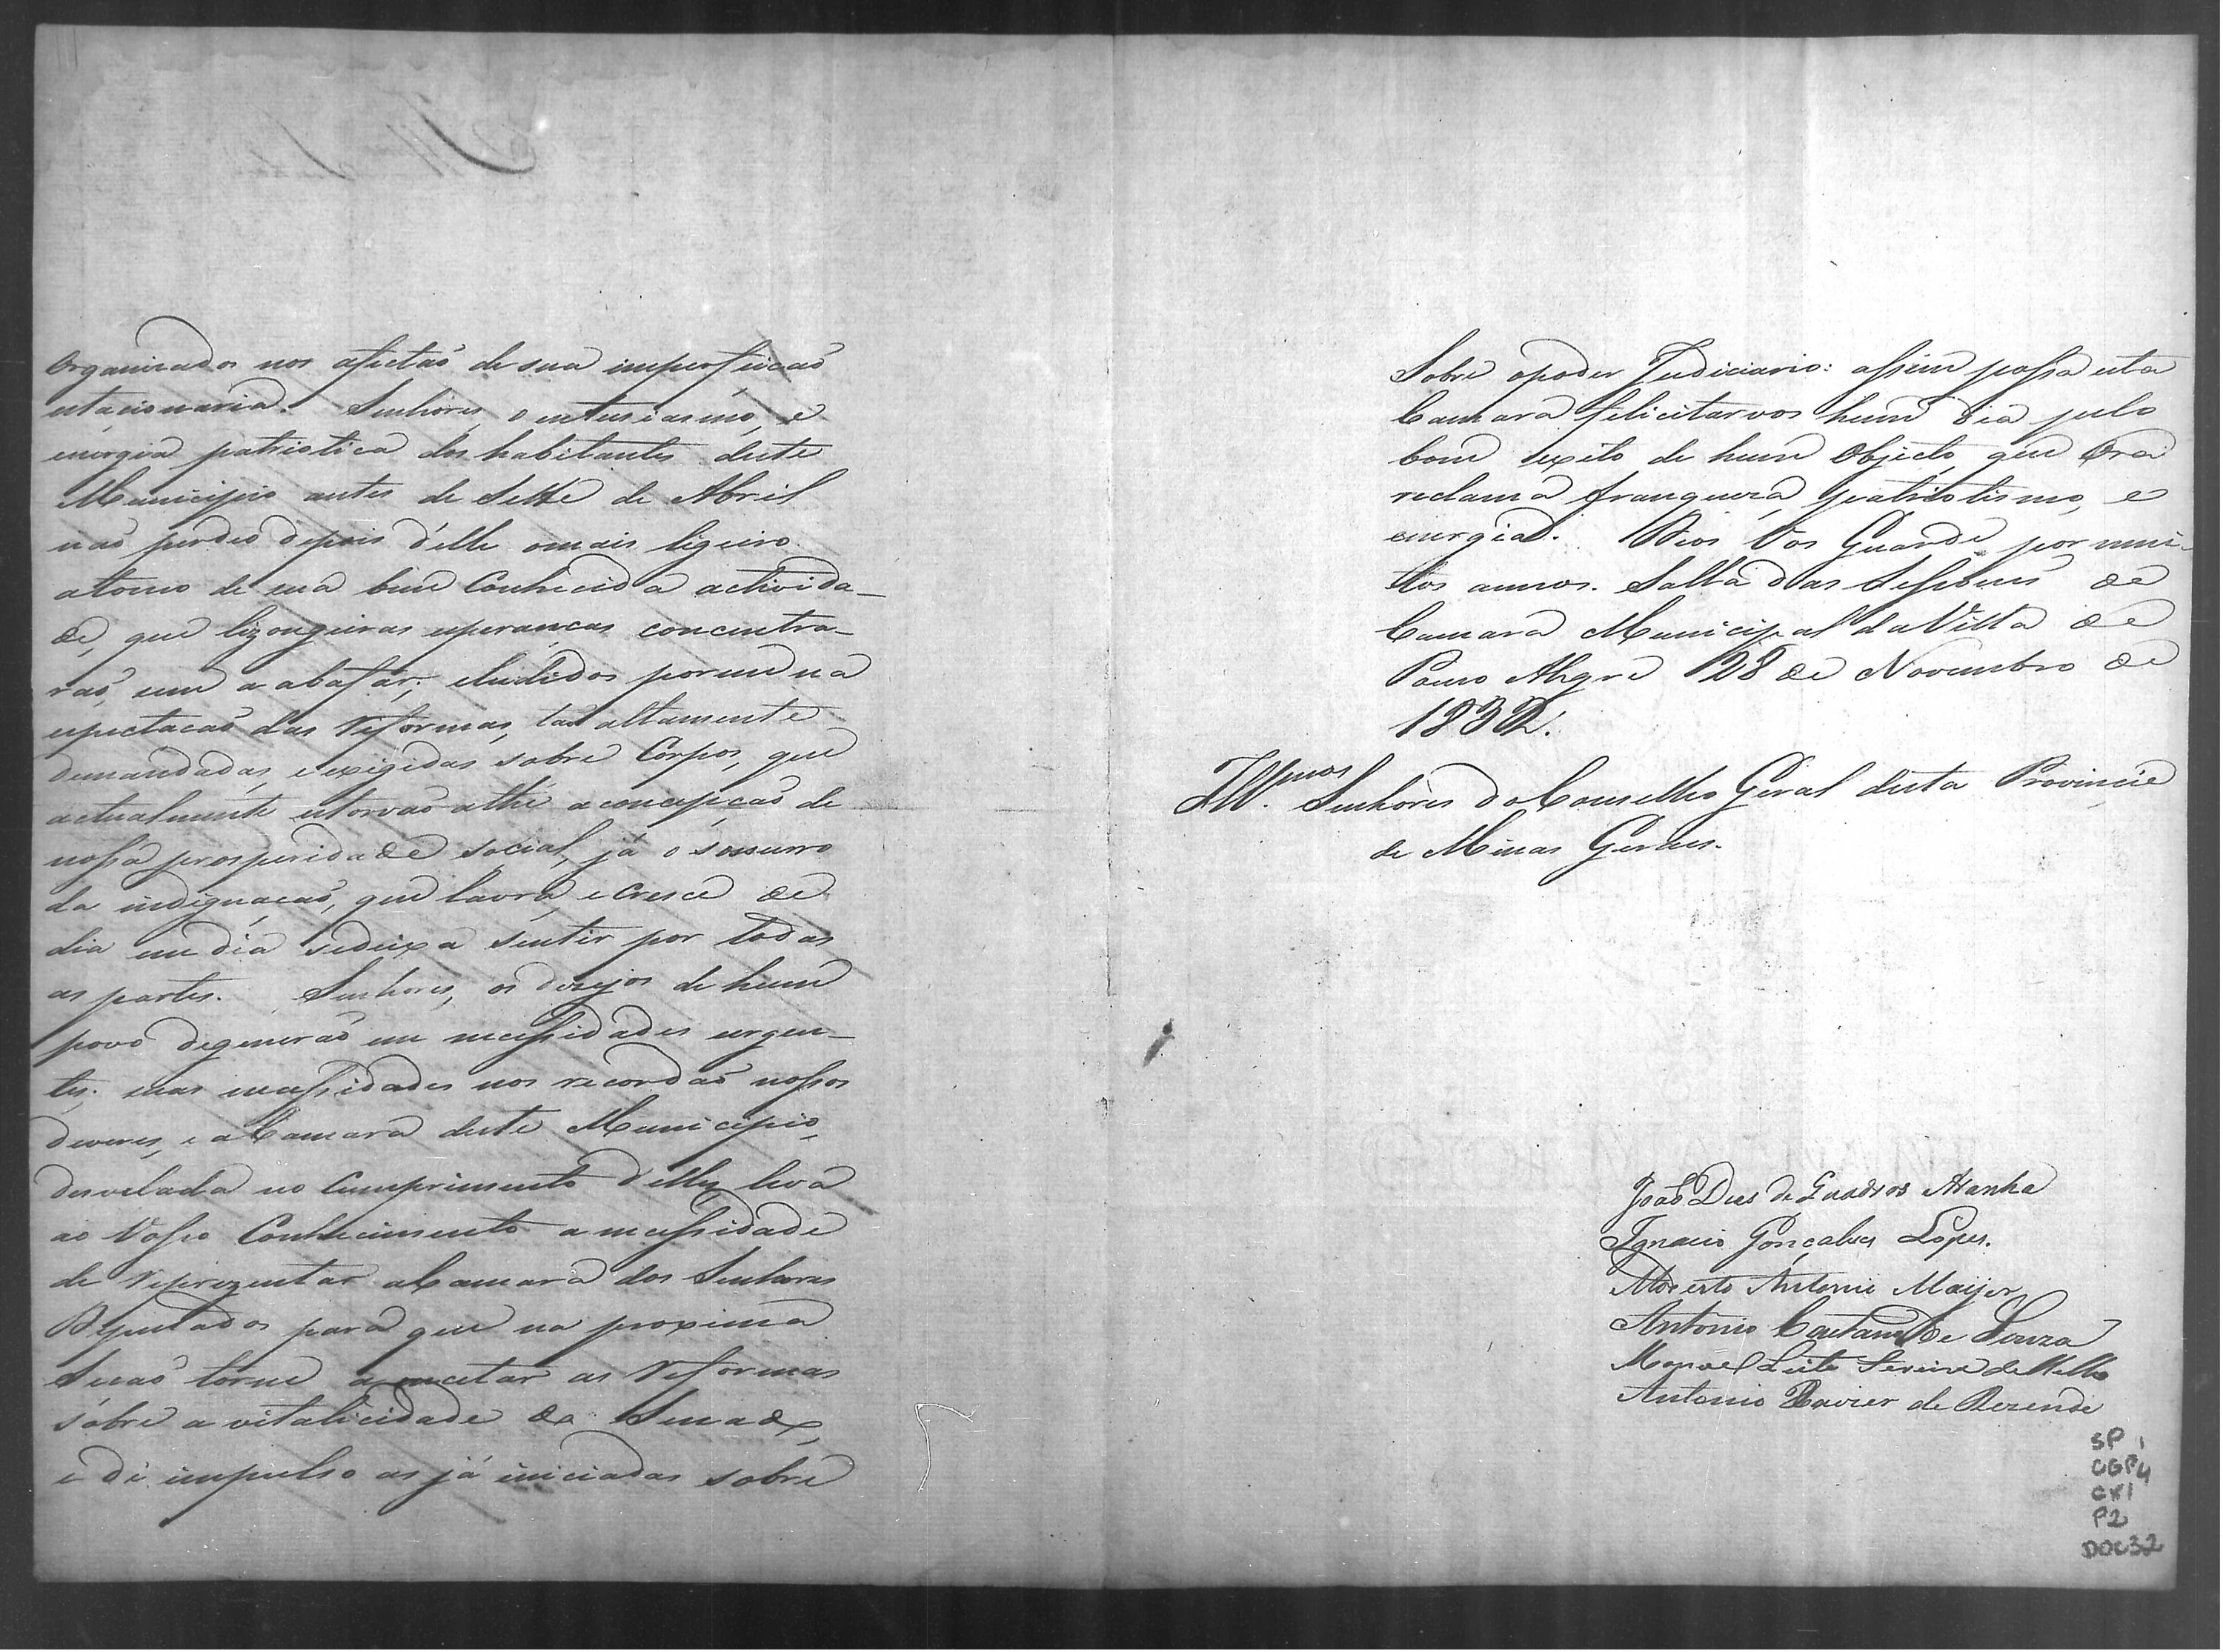 Organizados nos afectaõ de sua imperfeicaõ
estacionaria. Senhores, o entusiasmo, e
energia patriotica dos habitantes deste
Municipio antes de Sette de Abril
naõ perdeo depois d'elle omais ligeiro
atomo de sua bem Conhecida activida-
de, que lizongeiras esperancas concentra-
raõ, em a abafar; eludidos porem na
espectacaõ das Reformas, taõ altamente
demandadas, e exigidas sobre Corpos, que
actualmente estorvaõ athé a concepçaõ de
nossa prosperidade social, já o sossurro
da indignacaõ, que lavra, e cresce de
dia em dia sedeixa sentir por todas
as partes. Senhores, os dezejos de hum
povo degeneraõ em necessidades urgen-
tes; suas necessidades nos recordaõ nossos
deveres, e a Camara deste Municipio,
desvelada no Cumprimento delles, leva
ao Vosso Conhecimento a necessidade
de reprezentar aCamara dos Senhores
Deputados para que na proxima
Sessaõ torne a encetar as Reformas
sobre a vitalicidade do Senado,
e dê impulso as já iniciadas sobre
Sobre opoder Judiciario: assim possa esta
Camara felicitarvos hum dia pelo
bom exito de hum Objecto, que Ora
reclama franqueza, patriotismo, e
energia. Deos Vos Guarde por mui-
tos annos. Salla das Sessoens da
Camara Municipal da Villa de
Pouso Alegre 28 de Novembro de
1832.
Ill.mos Senhores do Conselho Geral desta Provincia
de Minas Geraes.
Joaõ Dias de Quadros Aranha
Ignacio Gonçalves Lopes.
Modesto Antonio Maijer
Antonio Caetano de Souza
Manoel Leite Ferreira de Mello
Antonio Xavier de Rezende
SP 1
CGP4
CX1
P2
DOC32